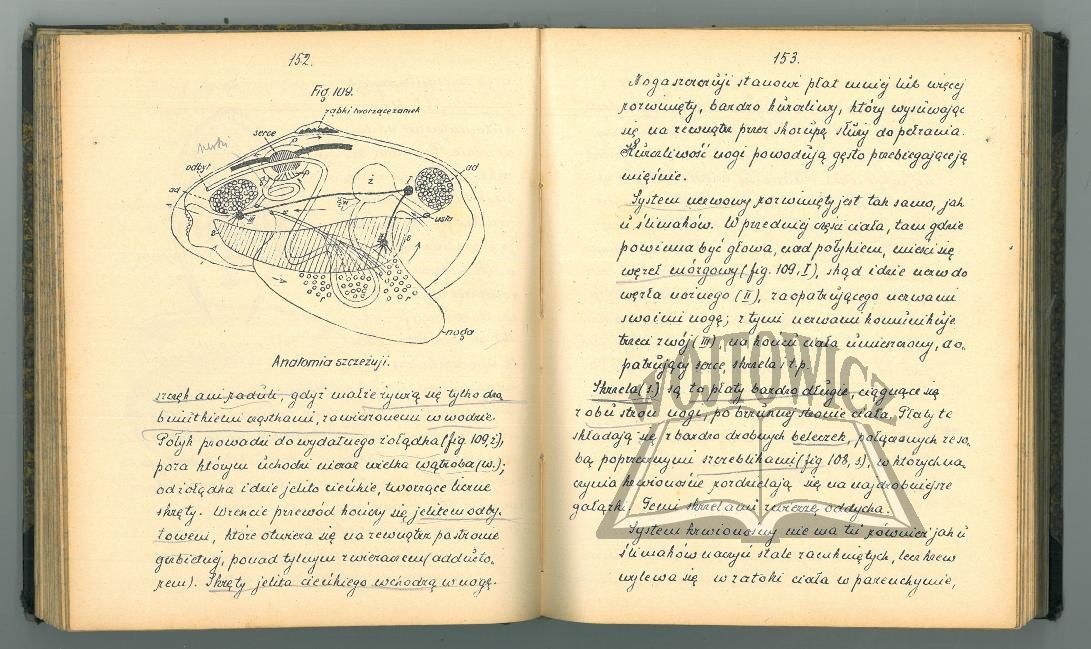 152.
Fig 109.
ząbki tworzące zamek
serce
odbyt
ad
ad
ż
usta
noga
Anatomia szczeżuji.
szczęk ani raduli, gdyż małże żywią się tylko dro
bniutkiemi cząstkami, zawieszonemi w wodzie.
Połyk prowadzi do wydatnego żołądka (fig 109, ż),
poza którym uchodzi nieraz wielka wątroba (w.);
od żołądka idzie jelito cieńkie, tworzące liczne
skręty. Wreszcie przewód kończy się jelitem odby,
towem, które otwiera się na zewnątrz po stronie
grzbietnej, ponad tylnym zwieraczem (addukto,
rem). Skręty jelita cieńkiego wchodzą w nogę.
153.
Noga szczeżuji stanowi płat mniej lub więcej
rozwinięty, bardzo kurczliwy, który wysuwając
się na zewnątrz przez skorupę służy do pełzania.
Kurczliwość nogi powodują gęsto przebiegające ją
mięśnie.
System nerwowy rozwinięty jest tak samo, jak
u ślimaków. W przedniej części ciała, tam gdzie
powinna być głowa, nad połykiem, mieści się
węzeł mózgowy (fig. 109, I), skąd idzie nerw do
węzła nożnego (II), zaopatrującego nerwami
swoimi nogę; z tymi nerwami komunikuje
trzeci zwój (III), na końcu ciała umieszczony, zao,
patrujący serce, skrzela i t.p.
Skrzela (s) są to płaty bardzo długie, ciągnące się
z obu stron nogi, po brzusznej stronie ciała. Płaty te
składają się z bardzo drobnych beleczek, połączonych ze so,
bą poprzecznymi szczeblikami (fig 108, s), w których na,
czynia krwionośne rozdzielają się na najdrobniejsze
gałązki. Temi skrzelami zwierzę oddycha.
System krwionośny nie ma tu również jak u
ślimaków naczyń stale zamkniętych, lecz krew
wylewa się w zatoki ciała w parenchymie,
WÓJTOWICZ